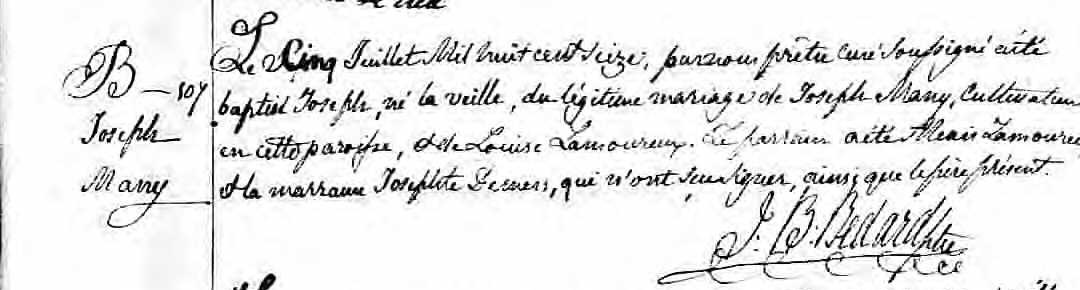 B—107
Joseph
Many
Le Cinq Juillet Mil huit cent Seize, par nous prêtre curé Soussigné a été
baptisé Joseph, né la veille, du légitime mariage de Joseph Many, Cultivateur
en cette paroisse, & de Louise Lamoureux. Le parrain a été Alexis Lamoureux
& la marraine Josephte Demers, qui n'ont Su signer, ainsi que le père présent.
J. B. Bedard Ptre